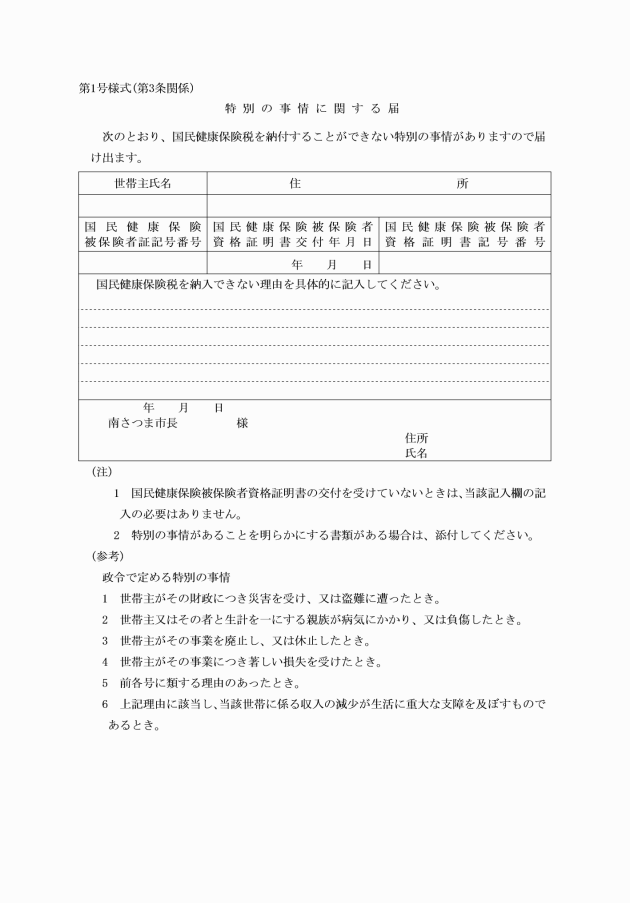 第1号様式(第3条関係)
特別の事情に関する届
次のとおり、国民健康保険税を納付することができない特別の事情がありますので届
け出ます。
世帯主氏名 住所
国民健康保険 国民健康保険被保険者 国民健康保険被保険者
被保険者証記号番号 資格証明書交付年月日 資格証明書記号番号
年 月 日
国民健康保険税を納入できない理由を具体的に記入してください。
年 月 日
南さつま市長 様
住所
氏名
(注)
1 国民健康保険被保険者資格証明書の交付を受けていないときは、当該記入欄の記
入の必要はありません。
2 特別の事情があることを明らかにする書類がある場合は、添付してください。
(参考)
政令で定める特別の事情
1 世帯主がその財政につき災害を受け、又は盗難に遭ったとき。
2 世帯主又はその者と生計を一にする親族が病気にかかり、又は負傷したとき。
3 世帯主がその事業を廃止し、又は休止したとき。
4 世帯主がその事業につき著しい損失を受けたとき。
5 前各号に類する理由のあったとき。
6 上記理由に該当し、当該世帯に係る収入の減少が生活に重大な支障を及ぼすもので
あるとき。